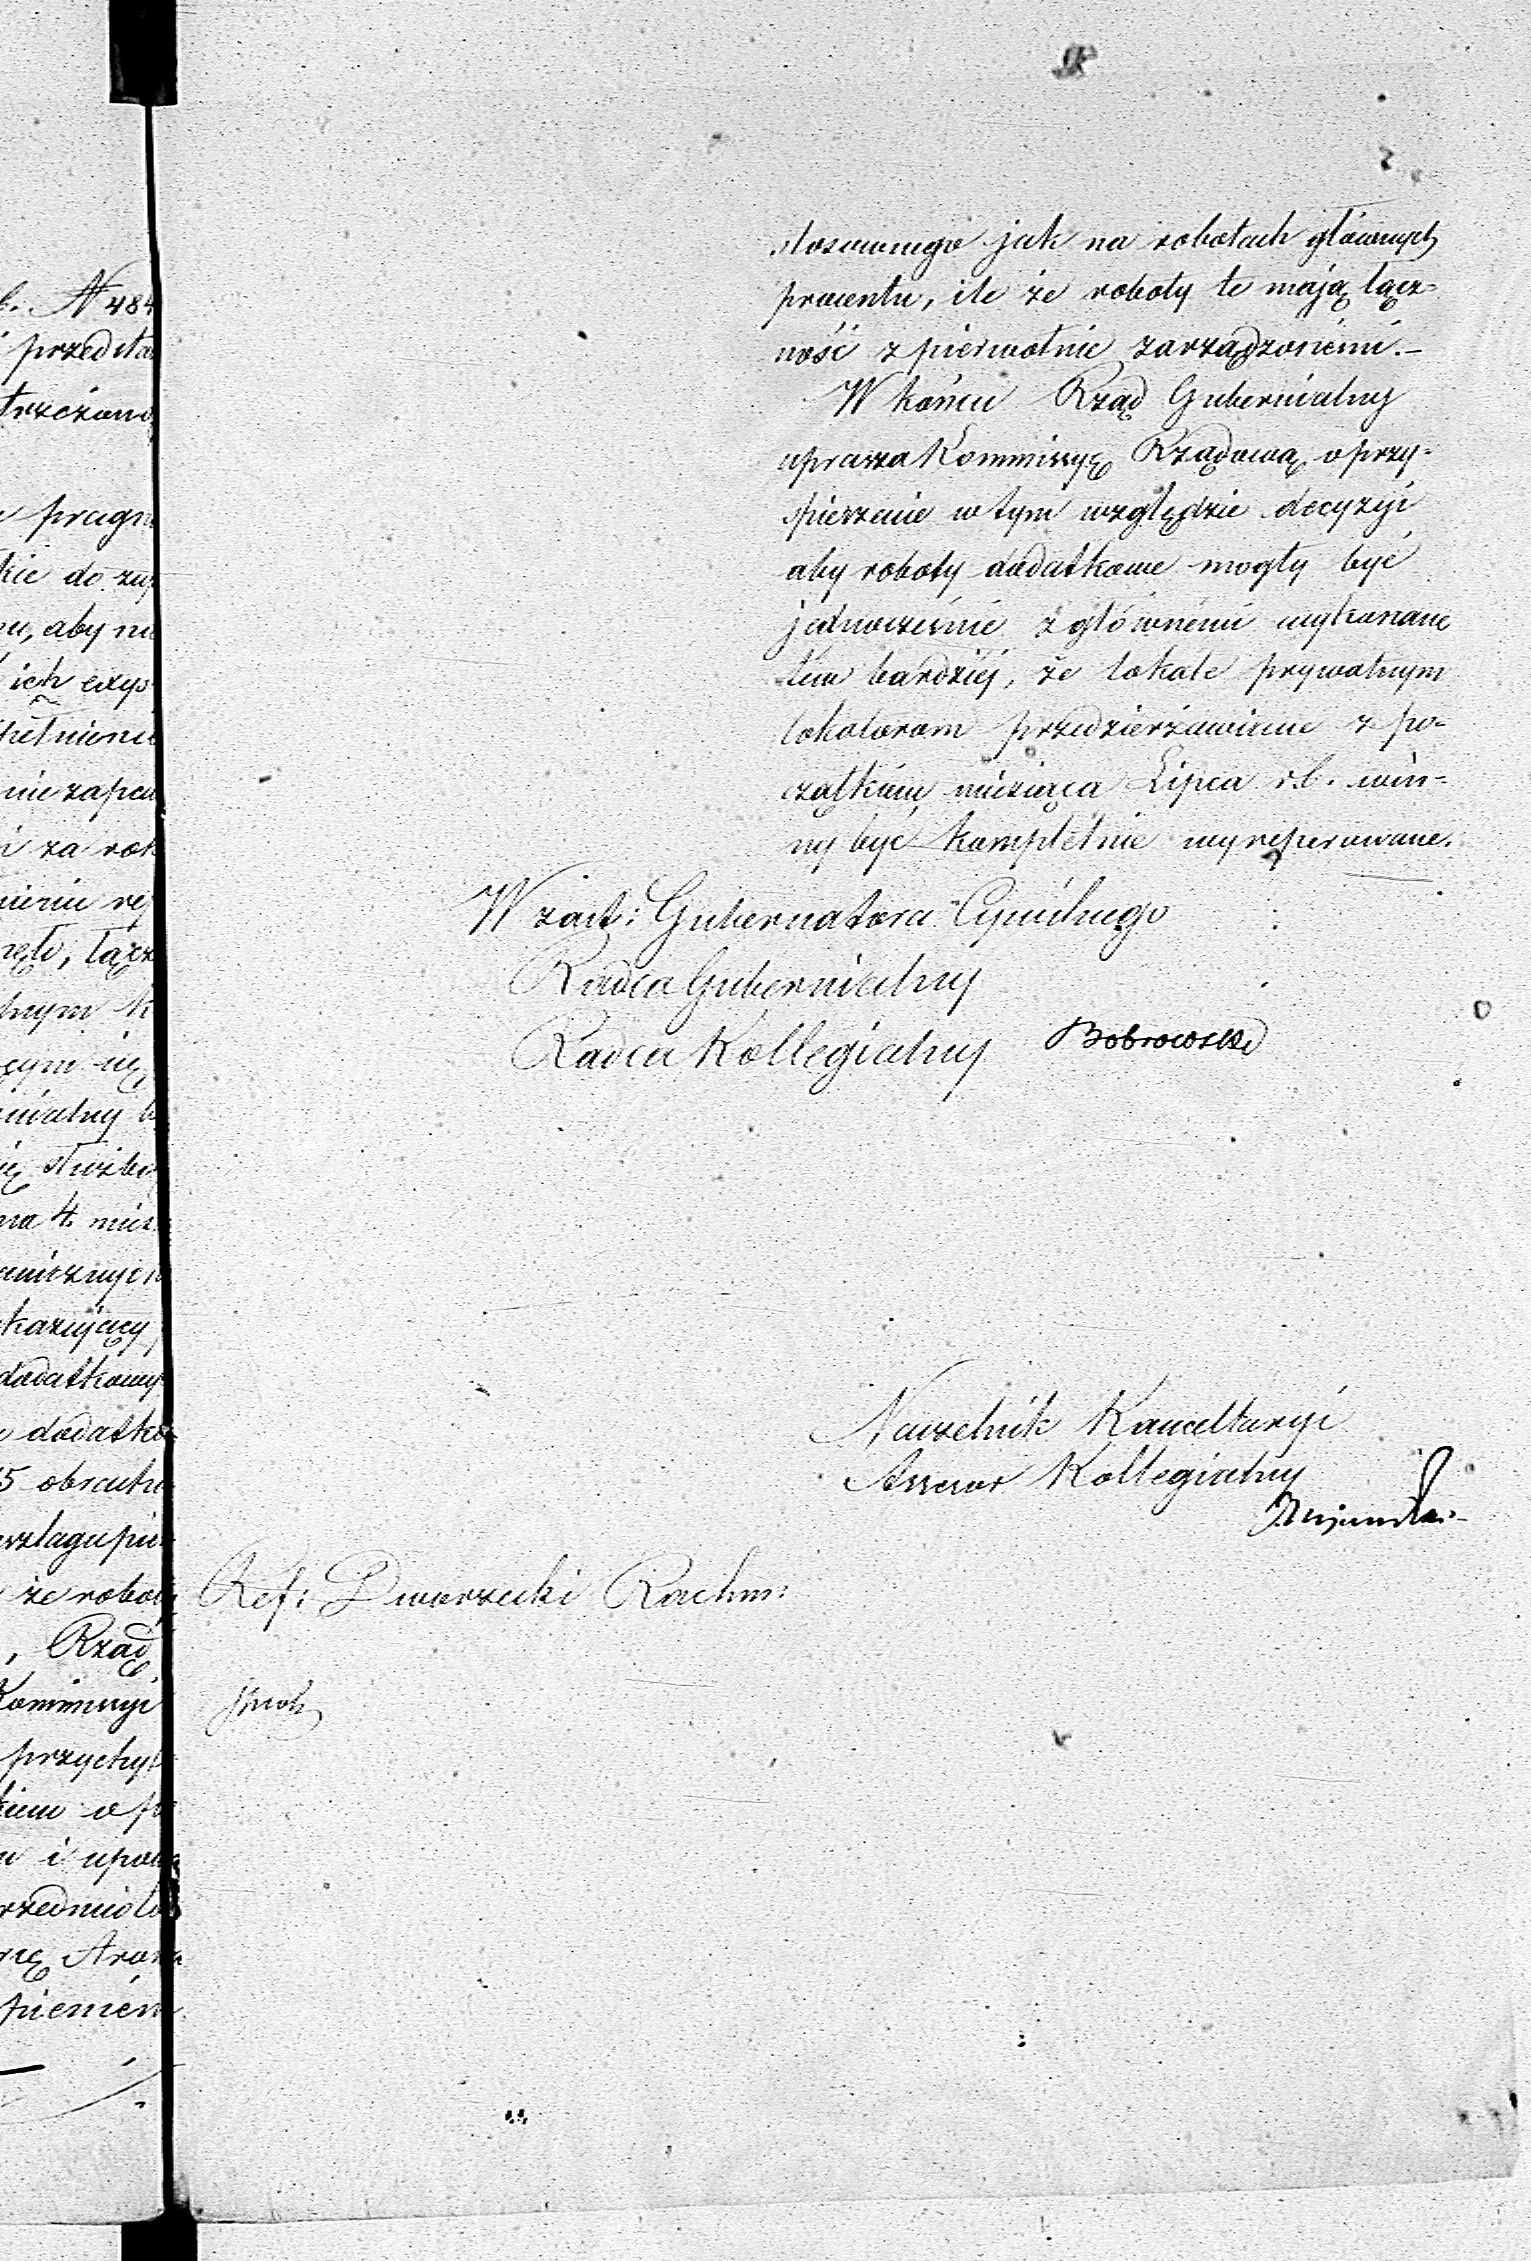 stosownego jak na robotach głównych
procentu, ile że roboty te mają łącz-
ność z pierwotnie zarządzonémi.-
W końcu Rząd Gubernialny
uprasza Kommissyę Rządową o przy-
spieszenie w tym względzie decyzyi
aby roboty dodatkowe mogły być
jednocześnie z głównémi wykonane
tém bardziéj, że lokale prywatnym
lokatorom przedzierżawione z po-
czątkiem miesiąca Lipca r.b. win-
ny być kompletnie wyreperowane.
W zast: Gubernatora Cywilnego
Radca Gubernialny
Radca Kollegialny Bobrowski
Naczelnik Kancellaryi
Assesor Kollegialny
Ref: Dworzecki Rachm:
N 484
przedsta
trzeżono
pragn
kie do
aby
ich exp
pełnieni
nie zapew
za rok
łącz
nym
ialny
służbo
na 4. mies
kazujący
dodatkowy
dodatko
5 obrach
że robot
Rząd
Kommissyi
przychyl
i upow
rzedmiot